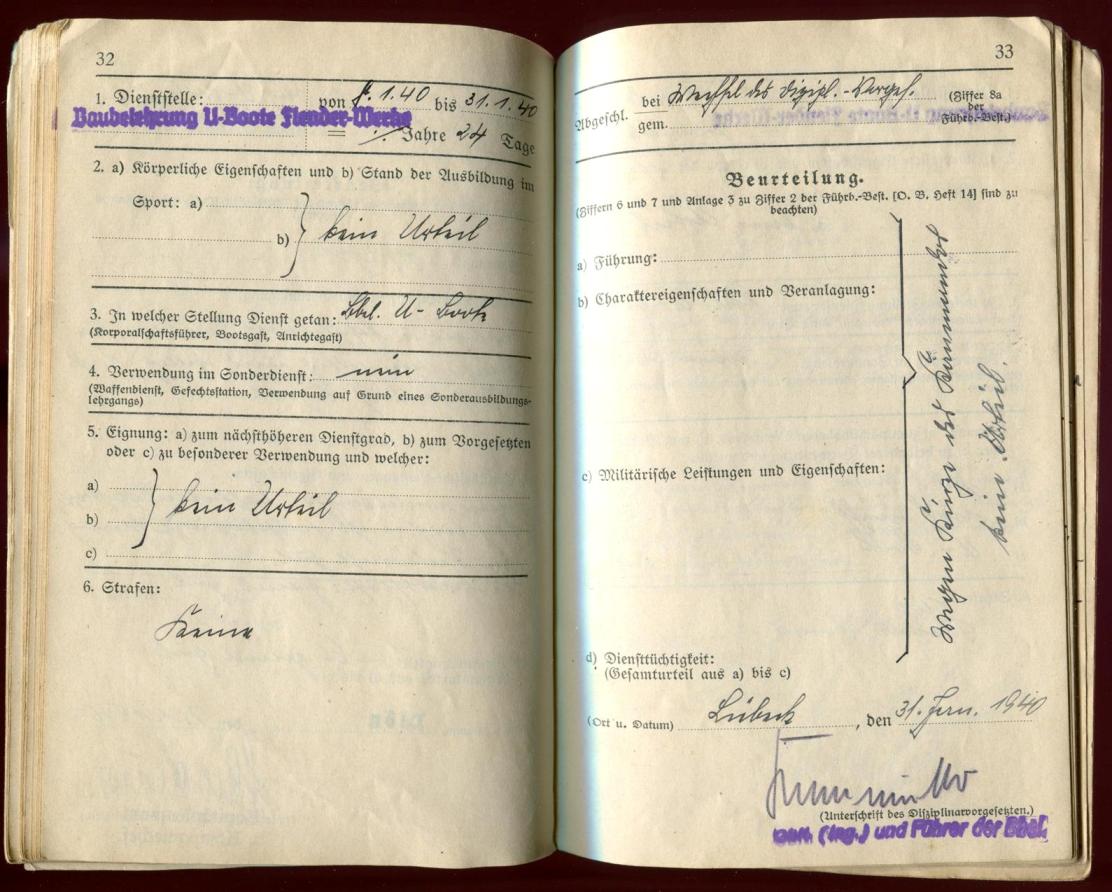 32
1. Dienststelle: von 8. 1. 40 bis 31. 1. 40
Baubelehrung U-Boote Flender-Werke
./. Jahre 24 Tage
2. a) Körperliche Eigenschaften und b) Stand der Ausbildung im
Sport: a)
b) kein Urteil
3. In welcher Stellung Dienst getan: Bbl. U-Boote
(Korporalschaftsführer, Bootsgast, Anrichtegast)
4. Verwendung im Sonderdienst:
(Waffendienst, Gefechtsstation, Verwendung auf Grund eines Sonderausbildungs-
lehrgangs)
5. Eignung: a) zum nächsthöheren Dienstgrad, b) zum Vorgesetzten
oder c) zu besonderer Verwendung und welcher:
a)
kein Urteil
b)
c)
6. Strafen:
Keine
33
Abgeschl. bei Wechsel des diszipl.-Vorges. (Ziffer 8a
gem. der
Führb.-Best.)
Beurteilung.
(Ziffern 6 und 7 und Anlage 3 zu Ziffer 2 der Führb.-Best. [O. B. Heft 14] sind zu
beachten)
a) Führung:
b) Charaktereigenschaften und Veranlagung:
c) Militärische Leistungen und Eigenschaften:
Wegen Kürze des Kommandos
kein Urteil.
d) Diensttüchtigkeit:
(Gesamturteil aus a) bis c)
(Ort u. Datum) Lübeck, den 31. Jan. 1940
(Unterschrift des Disziplinarvorgesetzten.)
(Ing.) und Führer der Bbel.